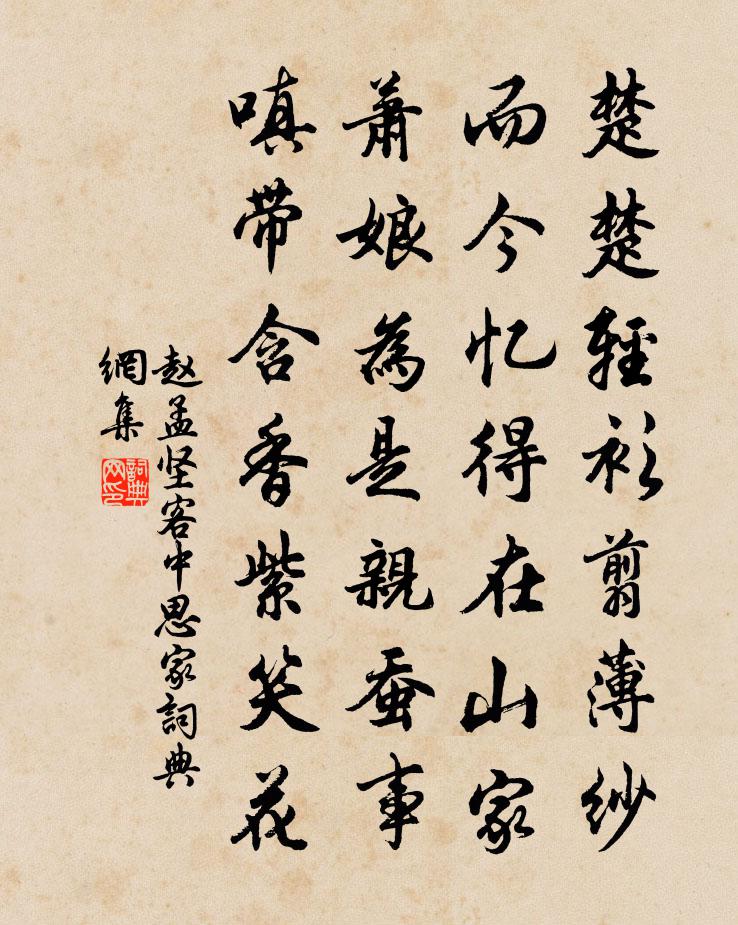 楚楚輕衫翦薄紗
而今忆得在山家
蕭娘為是親蚕事
嗔带含香紫笑花
赵孟坚客中思家詞典
網集
詞典
网印